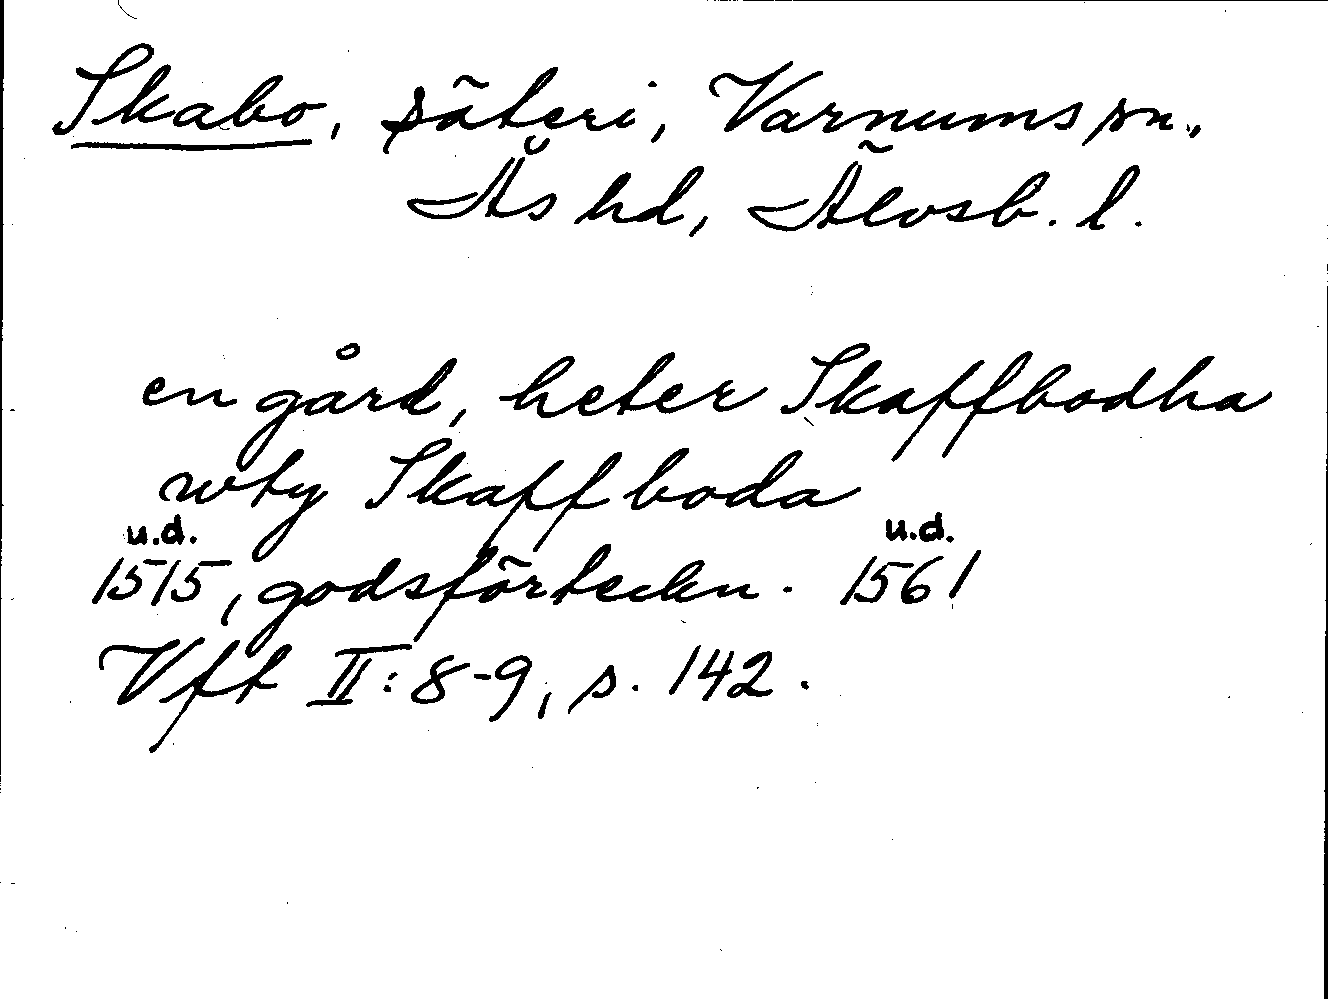 Skabo, säteri, Varnums sn.,
Ås hd, Älvsb. l.
en gård, heter Skaffbodha
wty Skaffboda
u.d. u.d.
1515, godsförteckn. 1561
Vft II:8-9, s. 142.